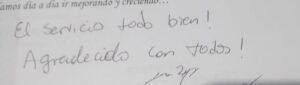 amos día a día ir mejorando y creciendo...
El servicio todo bien!
Agradecido con todos!